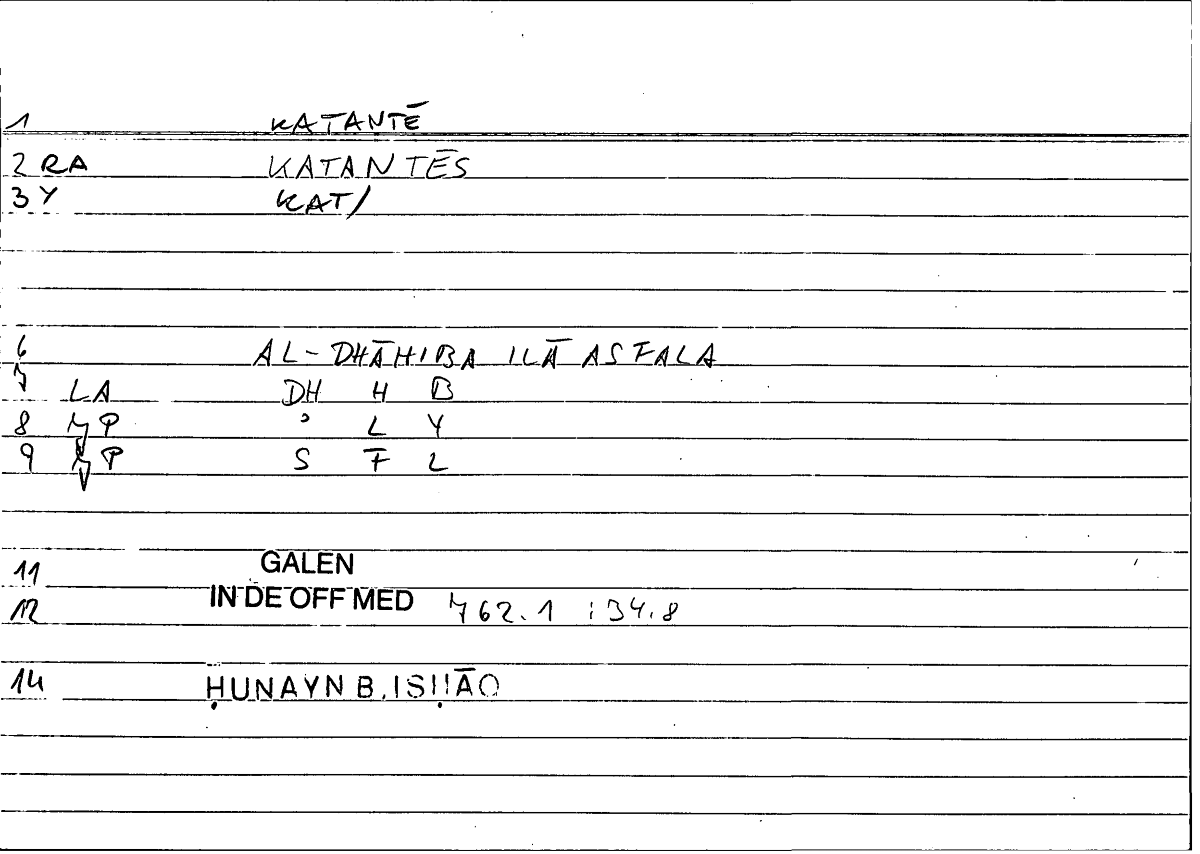 1 KATANTĒ
2 RA KATANTĒS
3 Y KAT/
6 AL-DHĀHIBA ILĀ ASFALA
7 LA DH H B
8 P ʾ L Y
9 P S F L
11 GALEN
12 IN DE OFF MED 762.1 : 34.8
14 ḤUNAYN B. ISḤĀQ